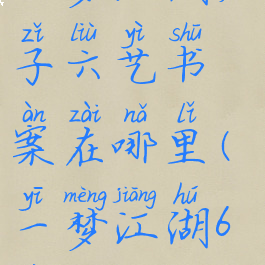 zǐ liù yì shū
子六艺书
àn zài nǎ lǐ
案在哪里(
yī mèng jiāng hú
一梦江湖6